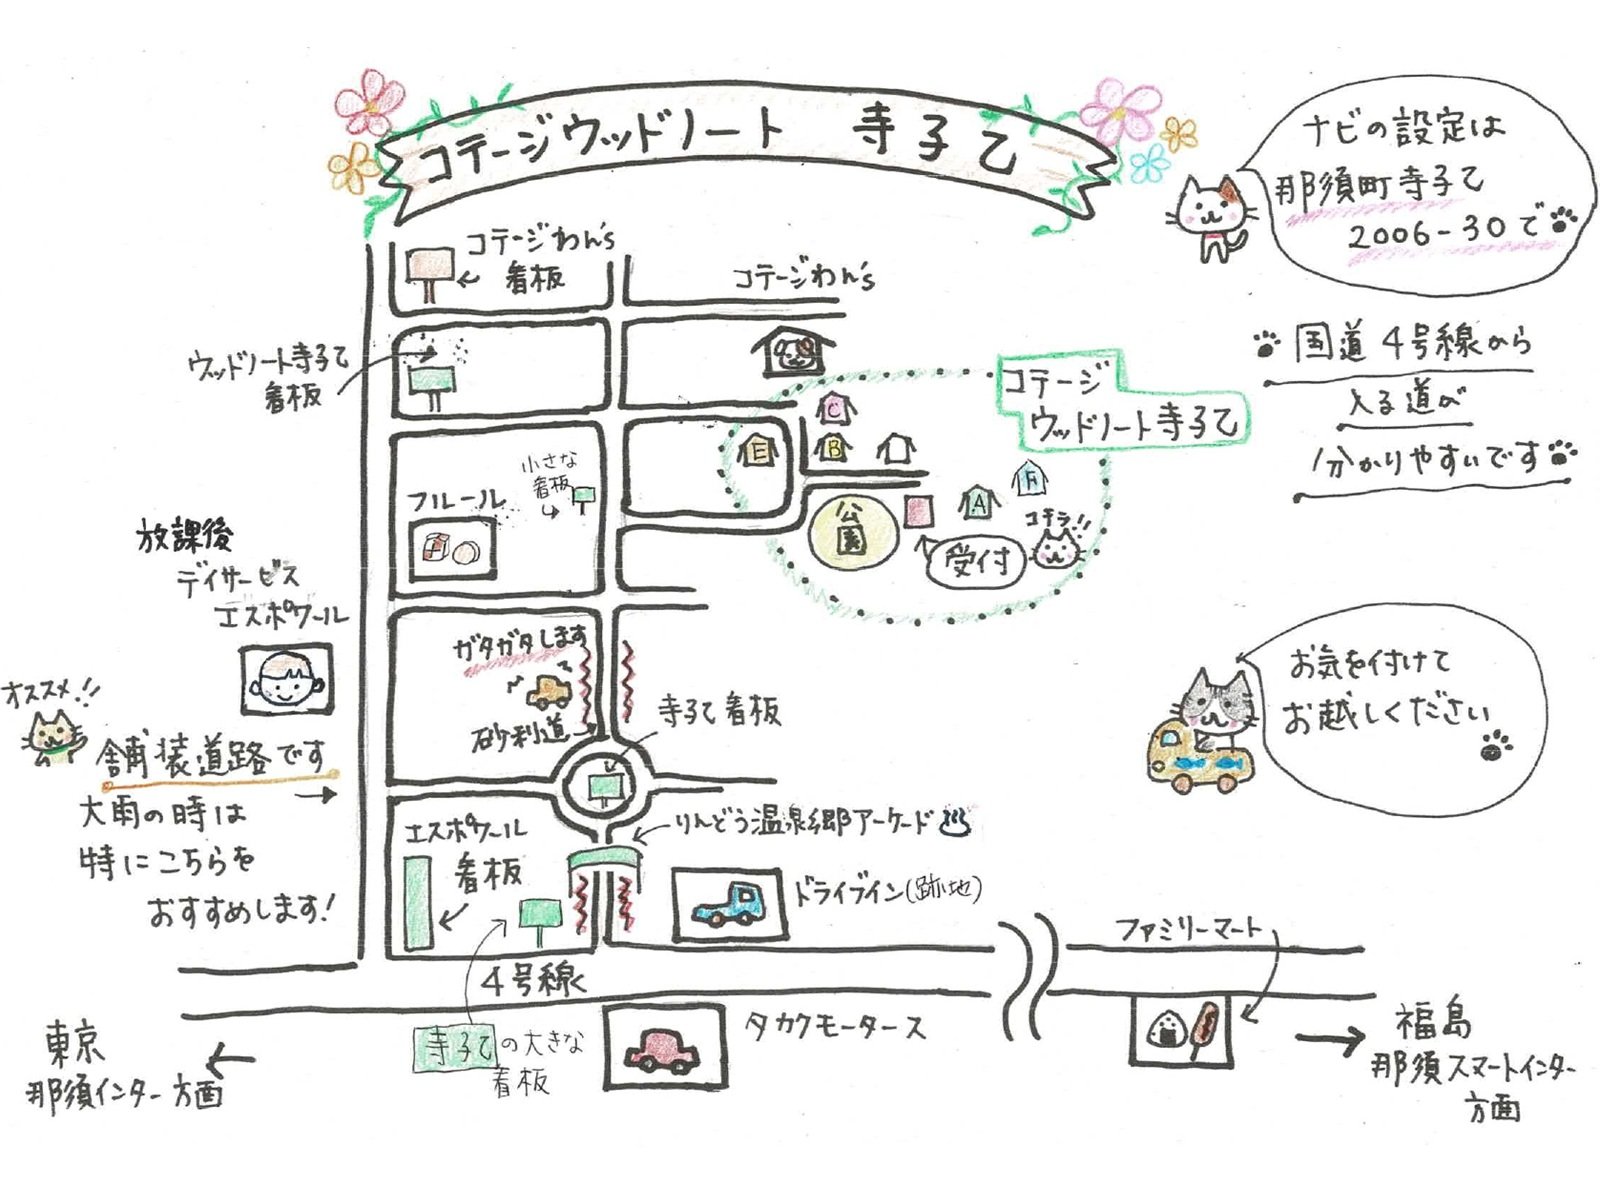 コテージウッドノート 寺子乙
ナビの設定は
那須町寺子乙
2006-30で
コテージわん's
看板
コテージわん's
ウッドノート寺子乙
看板
国道4号線から
入る道が
分かりやすいです
コテージ
ウッドノート寺子乙
C
E
B
A
F
小さな
看板
フルール
公園
コチラ!!
受付
放課後
デイサービス
エスポワール
ガタガタします
砂利道
寺子乙看板
オススメ!!
舗装道路です
大雨の時は
特にこちらを
おすすめします!
お気を付けて
お越しください
エスポワール
看板
りんどう温泉郷アーケード
ドライブイン(跡地)
ファミリーマート
4号線
寺子乙の大きな
看板
タカクモータース
東京
那須インター方面
福島
那須スマートインター
方面